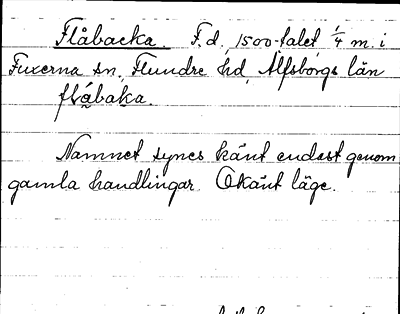 Flåbacka. F.d. 1500-talet 1/4 m. i
Fuxerna sn, Flundre hd, Älfsborgs län
flåbaka.
Namnet synes känt endast genom
gamla handlingar. Okänt läge.